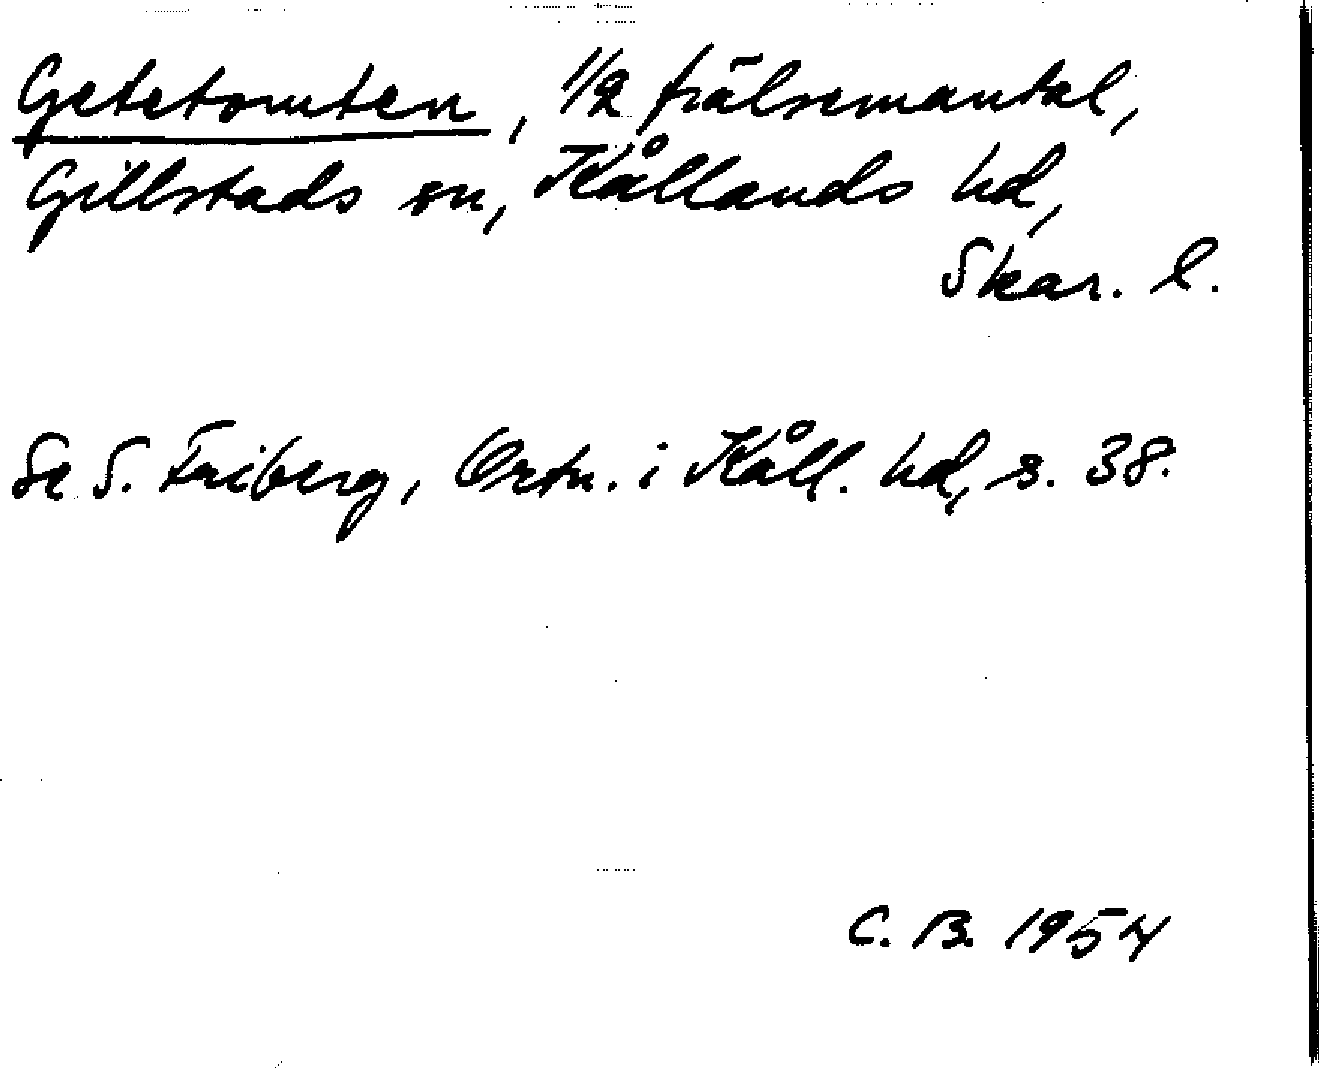 Getetomten, 1/2 frälsemantal,
Gillstads sn, Kållands hd,
Skar. l.
Se S. Friberg, Ortn. i Kåll. hd, s. 38.
C. B. 1954